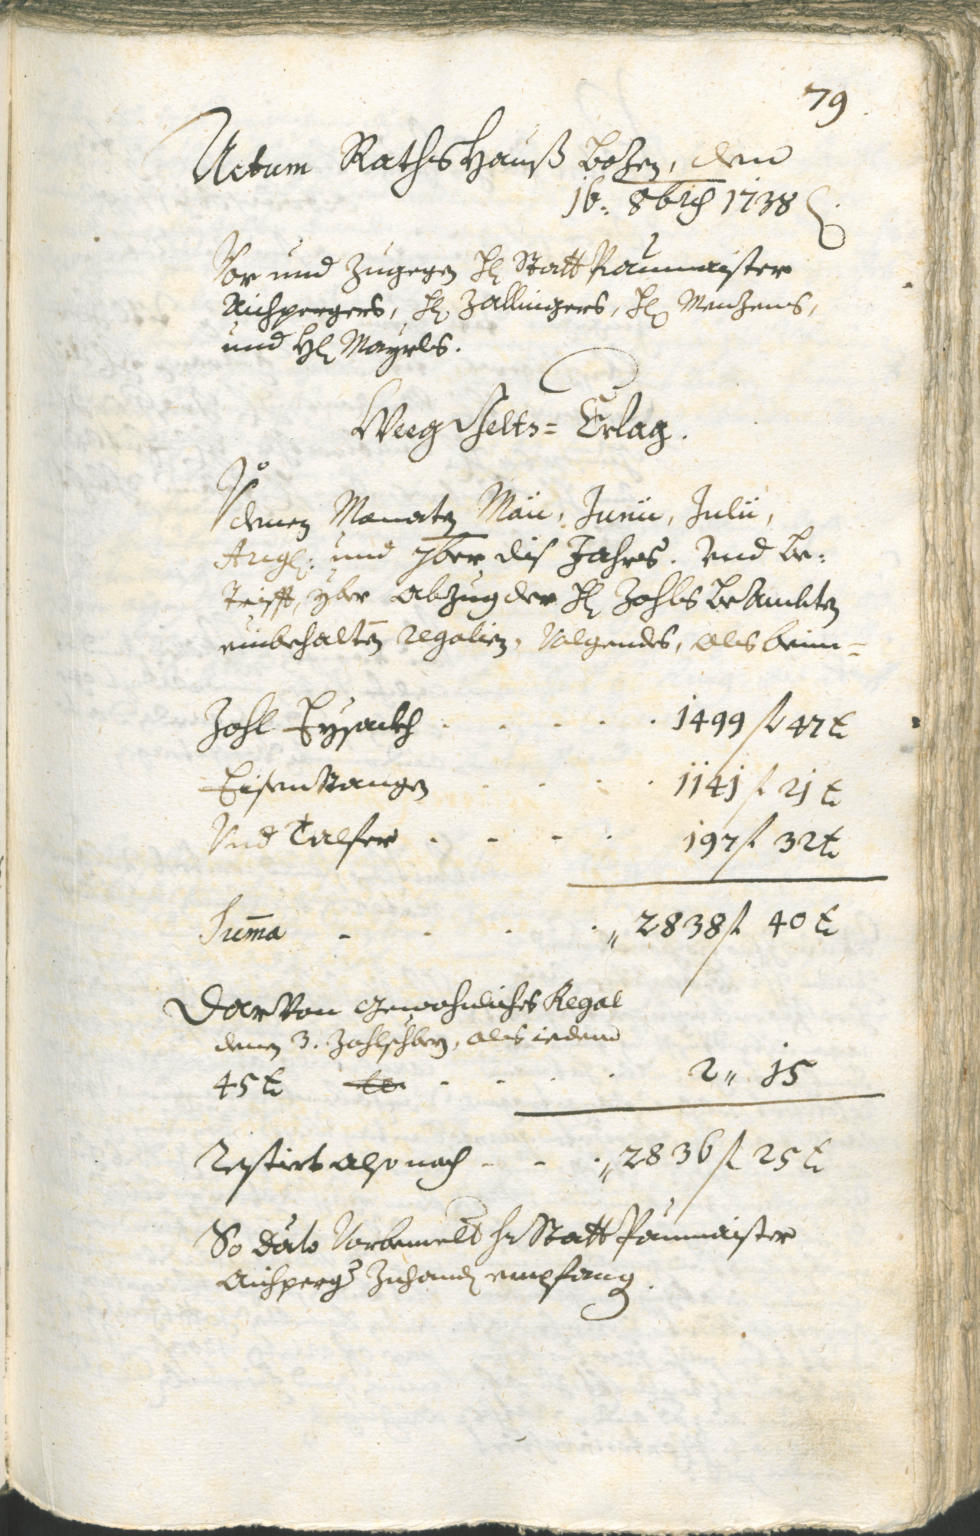 79
Actum RathsHauß Bozen, den
16: 8bris 1738
Vor und Zugegen H: Statt Paumaister
Aichpergers, H: Zallingers, H: Menzens,
und H: Mayrls.
Weeg Gelts= Erlag.
Vo
denen Monaten Maii, Junii, Julii,
Aug: und 7ber dis Jahrs. Und be=
trifft, yber Abzug der H: Zohls Beambten
einbehalten Regalien, Volgendes, als beim=
Zohl Eysackh . . . . . 1499 f 47 x
Eisenstangen . . . . 1141 f 21 x
Und Talfer . - - . 197 f 32 x
Suma - . . . „ 2838 f 40 x
Darvon gewohnliches Regal
denen 3. Zohlschbern, als iedem
45 x - . - . 2 „ 15
Restiert also noch - - . „ 2836 f 25 x
So dato Vorbemelt H: Statt Paumaister
Aichperg: Zuhanden empfang.